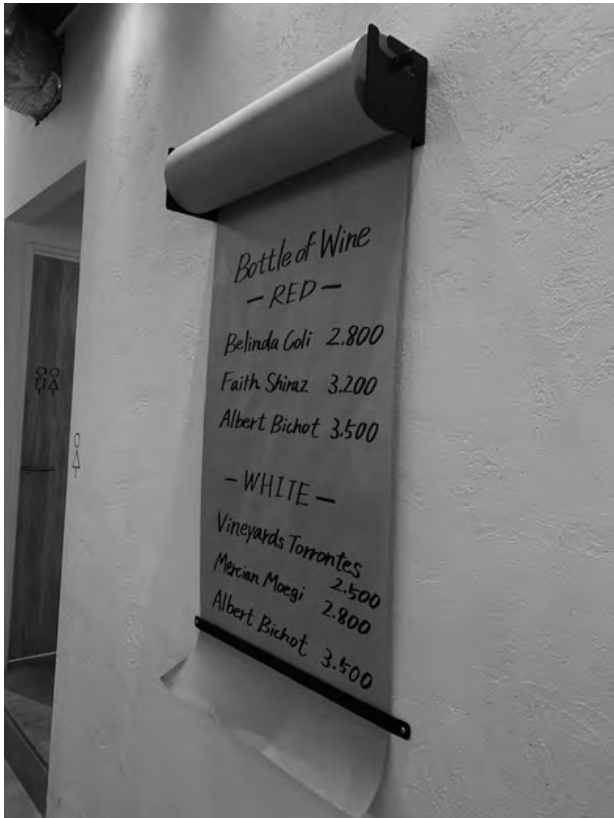 Bottle of Wine
— RED —
Belinda Coli 2.800
Faith Shiraz 3.200
Albert Bichot 3.500
— WHITE —
Vineyards Torrontes
2.500
Mercian Moegi 2.800
Albert Bichot 3.500